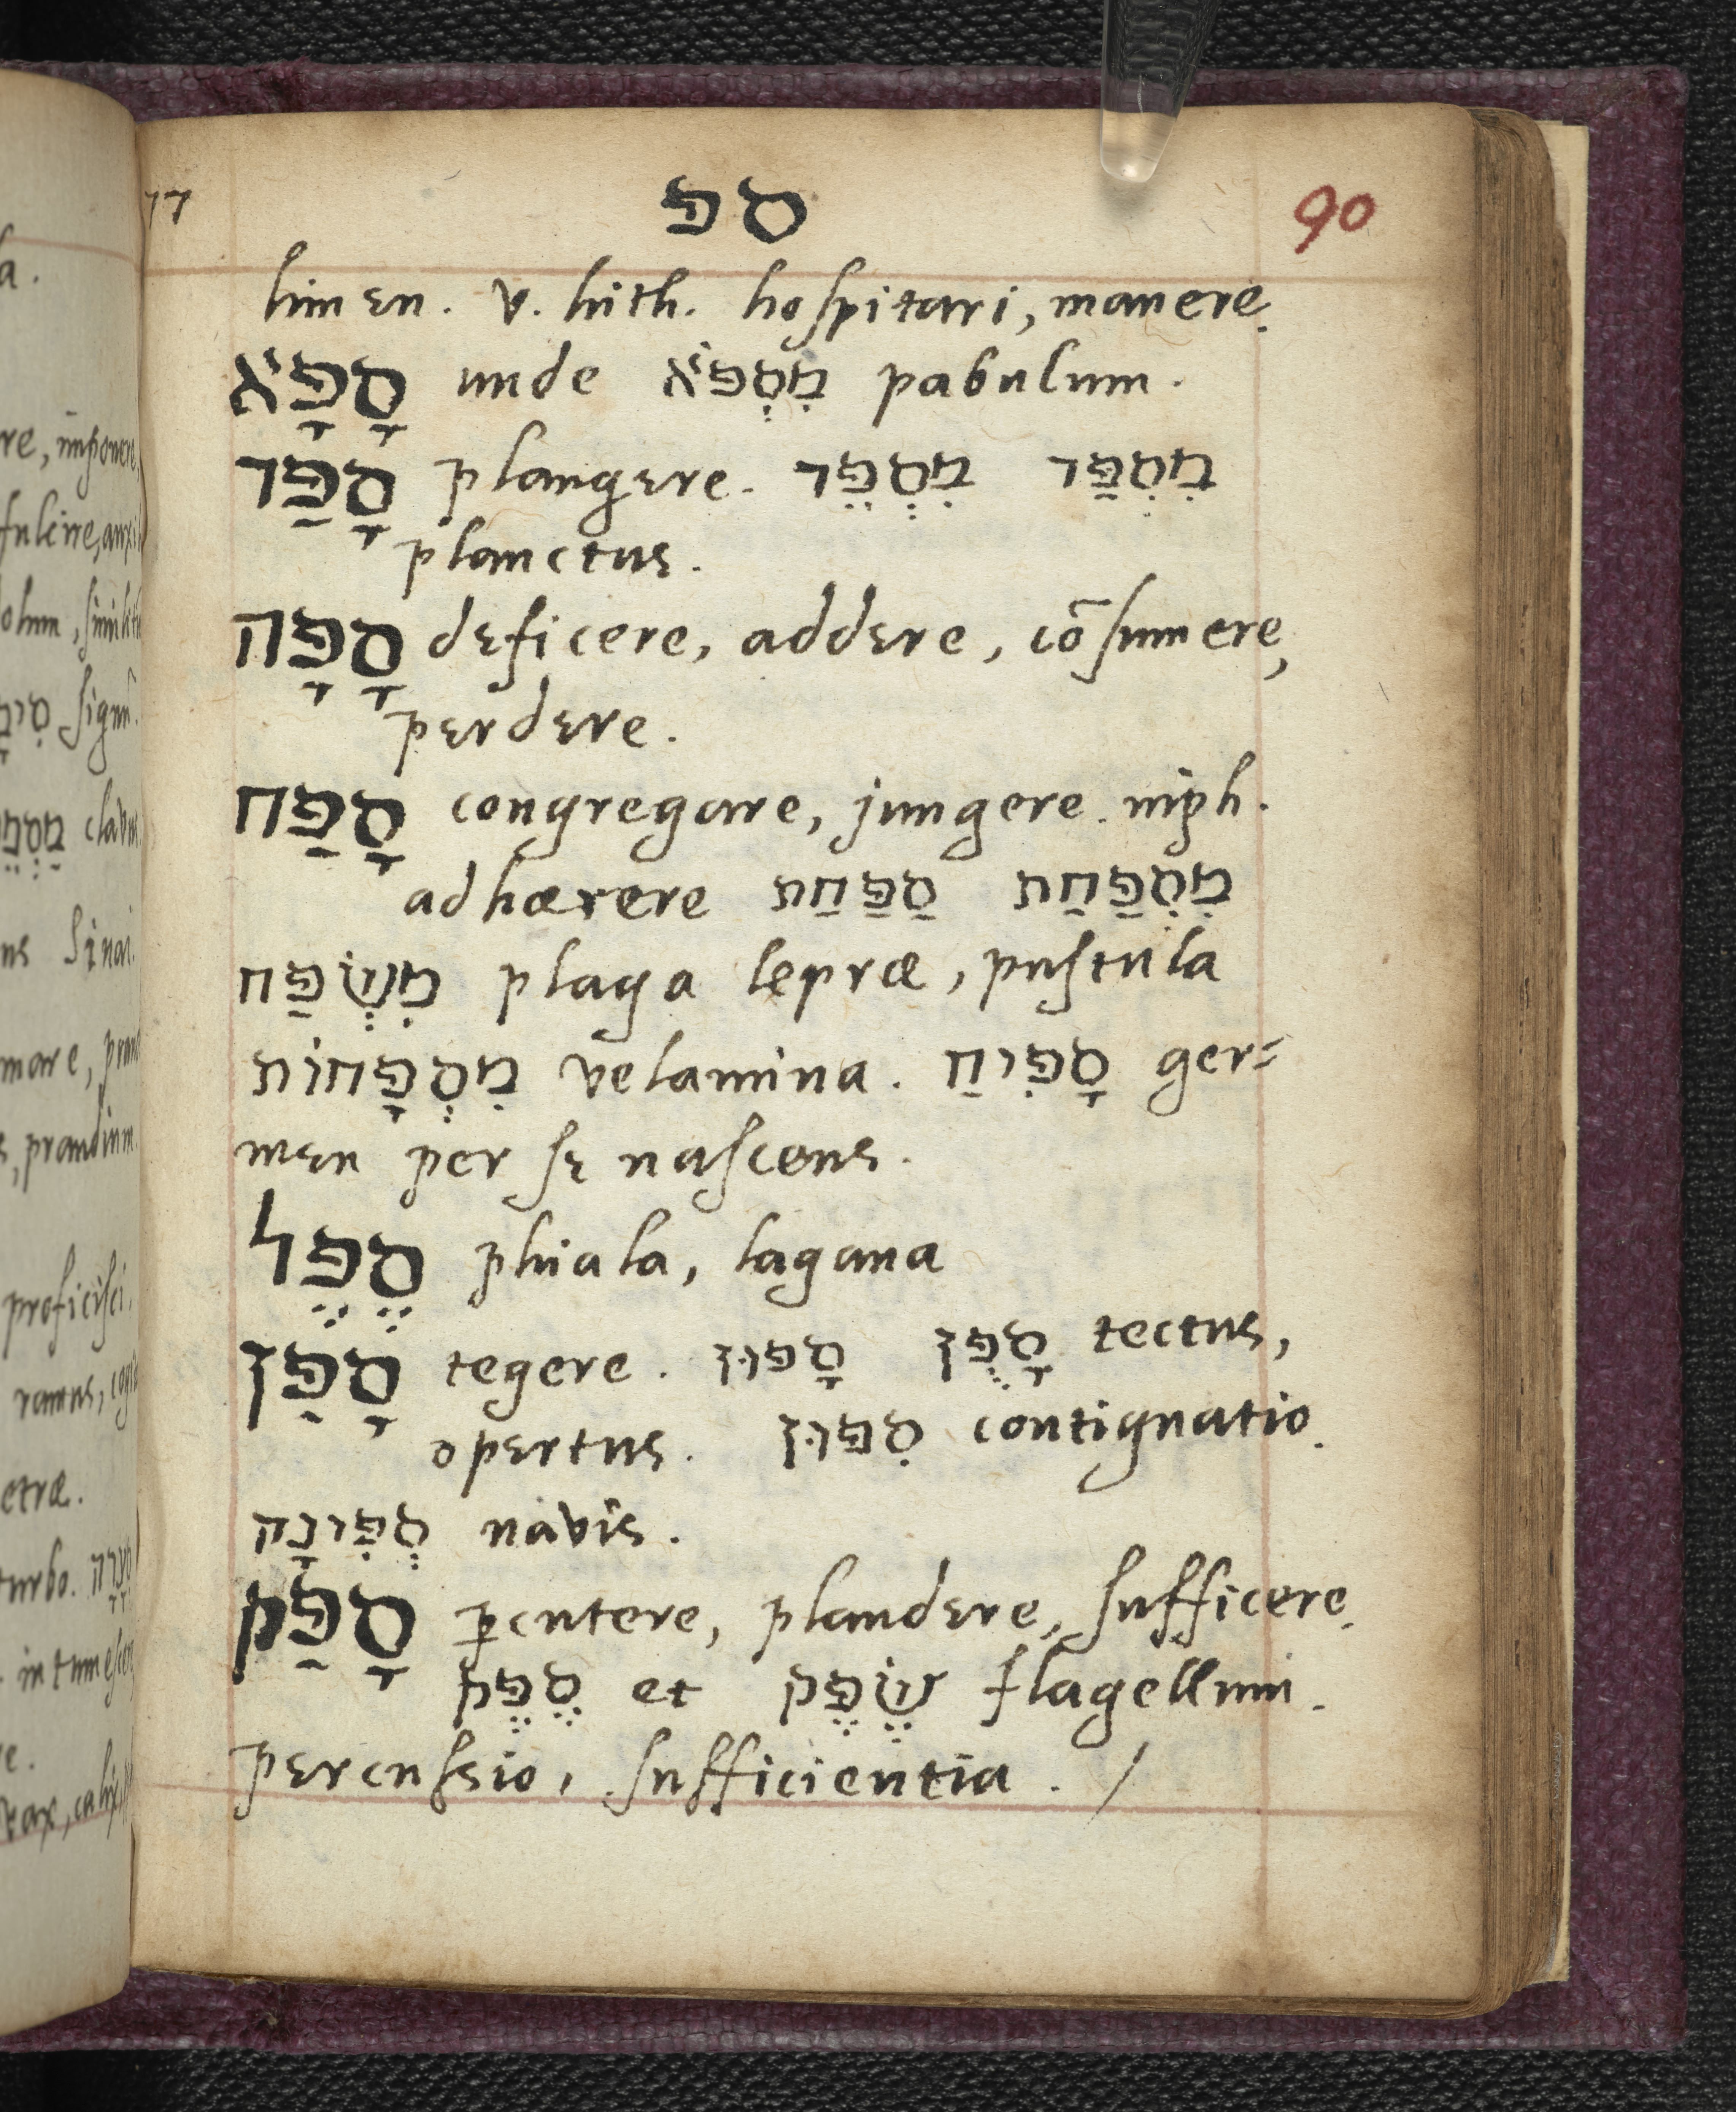 ספ
90
limen. v. hith. hospitari, manere.
סָפָּא unde מִסְפּא pabulum.
סָפַּד plangere. מִסְפֵּד מִסְפַּד
planctus.
סָפָּה deficere, addere, cōsumere,
perdere.
סָפַּח congregare, jungere. niph.
adhærere סַפַּחַת מִסְפַּחַת
מִשְׂפַּח plaga lepræ, pustula
מִסְפָּחוֹת velamina. סָפִּיחַ ger=
men per se nascens.
סֶפֶּל phiala, lagana
סָפַּן tegere. סָפוּן סָפֻּן tectus,
opertus. סִפּוּן contignatio.
סְפִּינָה navis.
סָפַּק ꝑcutere, plaudere, sufficere.
סֶפֶּק et שֶׂפֶּק flagellum.
percussio, sufficientia. /